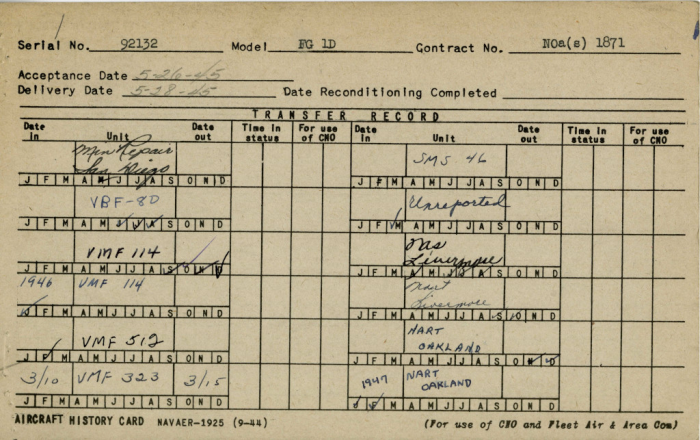 Serial No. 92132 Model FG 1D Contract No. NOa(s) 1871
Acceptance Date 5-26-45
Delivery Date 5-28-45 Date Reconditioning Completed
TRANSFER RECORD
Date in Unit Date out Time in status For use of CNO Date in Unit Date out Time in status For use of CNO
Min Repair San Diego SMS 46
J F M A M J J A S O N D J F M A M J J A S O N D
VBF-80 Unreported
J F M A M J J A S O N D J F M A M J J A S O N D
VMF 114 Nas Livermore
J F M A M J J A S O N D J F M A M J J A S O N D
1946 VMF 114 Nart Livermore
J F M A M J J A S O N D J F M A M J J A S O N D
VMF 512 NART OAKLAND
J F M A M J J A S O N D J F M A M J J A S O N D
3/10 VMF 323 3/15 1947 NART OAKLAND
J F M A M J J A S O N D J F M A M J J A S O N D
AIRCRAFT HISTORY CARD NAVAER-1925 (9-44) (For use of CNO and Fleet Air & Area Com)